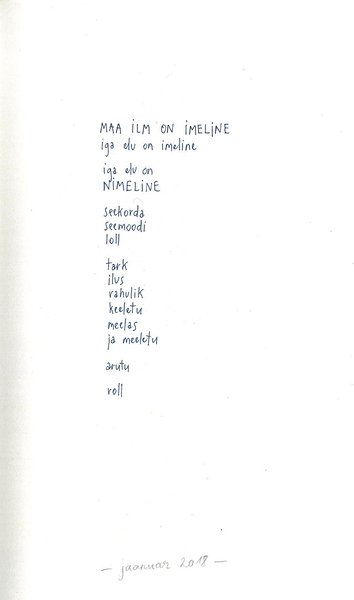 MAA iLM ON iMELiNE
iga elu on imeline
iga elu on
NiMELiNE
seekorda
seemoodi
loll
tark
ilus
rahulik
keeletu
meelas
ja meeletu
arutu
roll
– jaanuar 2018 –